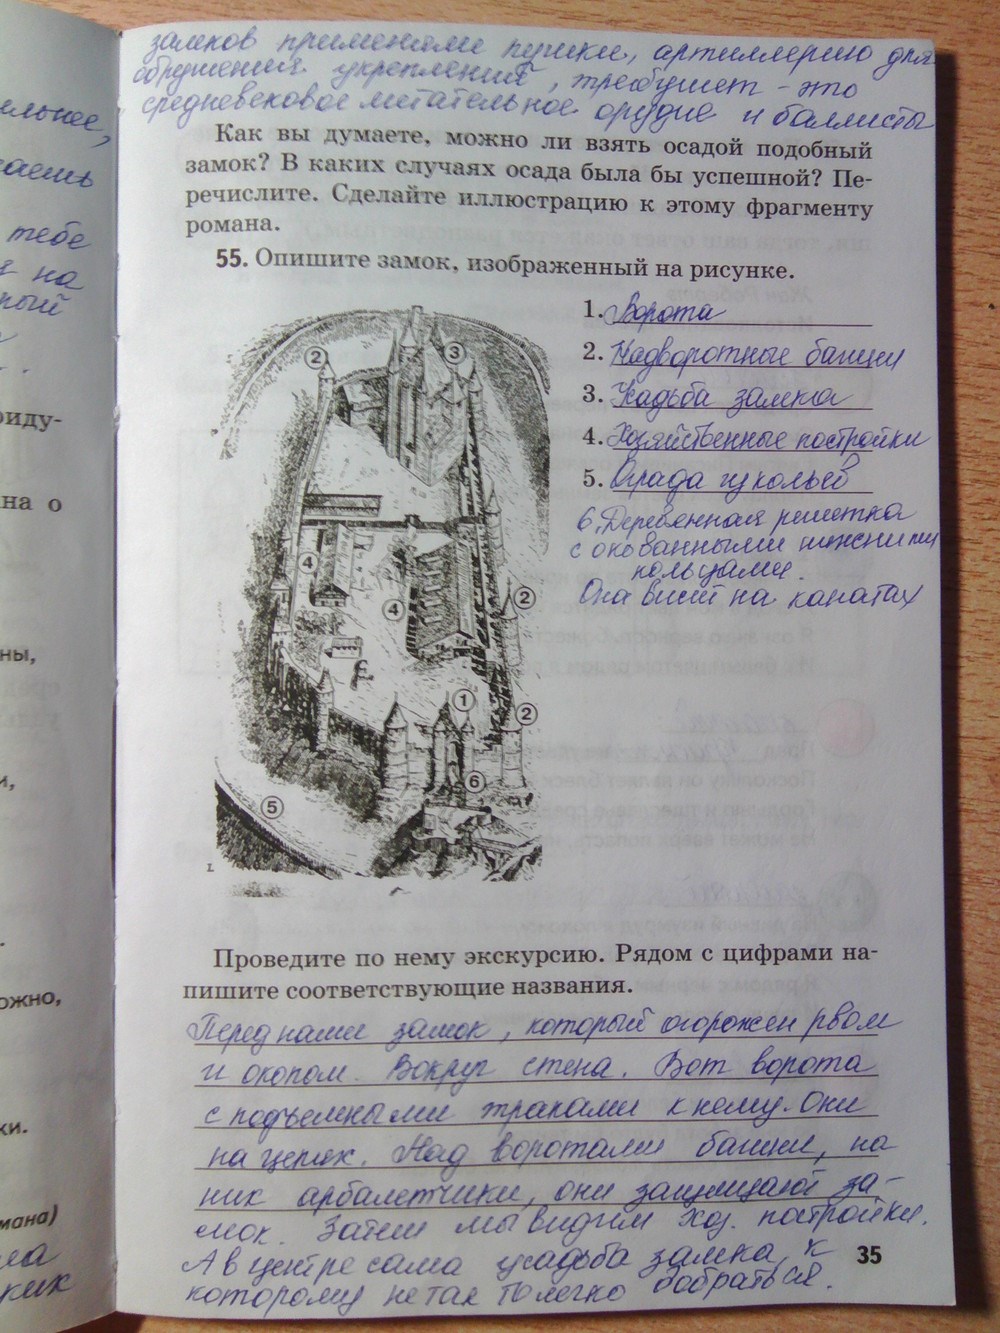 замков применяли пушки, артиллерию для
обрушения укреплений, требушет - это
средневековое метательное орудие и баллисты
Как вы думаете, можно ли взять осадой подобный
замок? В каких случаях осада была бы успешной? Пе-
речислите. Сделайте иллюстрацию к этому фрагменту
романа.
55. Опишите замок, изображенный на рисунке.
1. Ворота
2. Надворотные башни
3. Усадьба замка
4. Хозяйственные постройки
5. Ограда из кольев
6. Деревянная решетка
с окованными нижними
кольцами.
Она висит на канатах
2
3
4
4
2
1
2
6
5
Проведите по нему экскурсию. Рядом с цифрами на-
пишите соответствующие названия.
Перед нами замок, который огорожен рвом
и окопом. Вокруг стена. Вот ворота
с подъемными трапами к нему. Они
на цепях. Над воротами башни, на
них арбалетчики, они защищают за-
мок. Затем мы видим хоз. постройки.
А в центре сама усадьба замка, к
которому не так то легко добраться.
35
ельнее,
тебе
на
риду-
на о
ны,
ожно,
ки.
мана)